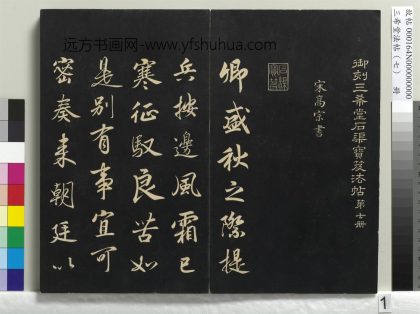 御刻三希堂石渠寶笈法帖 第七册
宋高宗書
卿盛秋之際提
兵按邊風霜已
寒征馭良苦如
是別有事宜可
密奏来朝廷以
远方书画网-www.yfshuhua.com
故帖 000164N000000000
三希堂法帖（七） 册
1